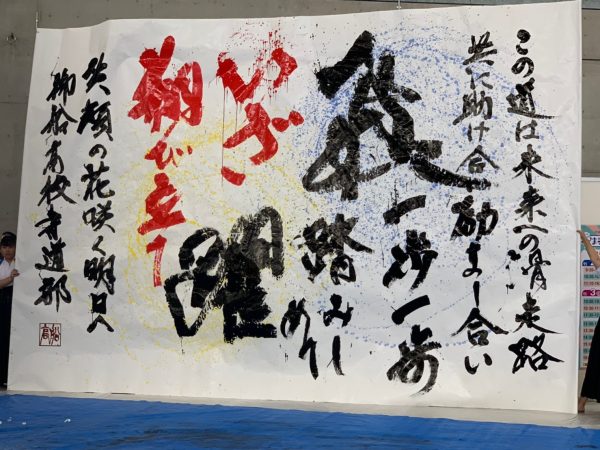 この道は未来への滑走路
共に助け合い励まし合い
一歩一歩
飛
踏みし
めて
躍
いざ
翔び立て
笑顔の花咲く明日へ
御船高校書道部